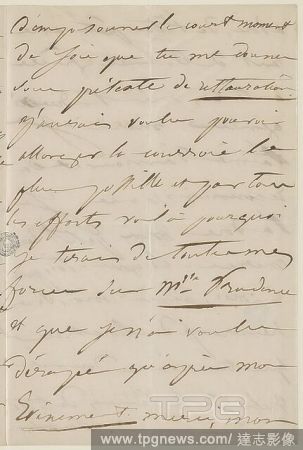 d'empoisonner le court moment
de joie que tu me donnes
sous prétexte de restauration.
J'aurais voulu pouvoir
allonger la courroie le
plus possible et par tous
les efforts voilà pourquoi
je tirais de toutes mes
forces sur Mlle Prudence
et que je n'ai voulu
qu'après mon
Evénement merci, mon
TPG
www.tpgnews.com / 達志影像